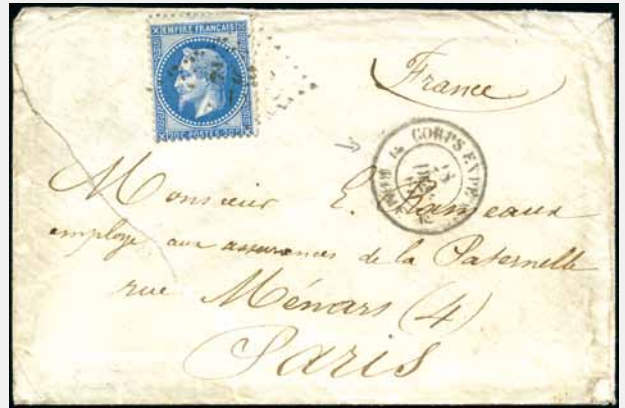 EMPIRE FRANÇAIS
20 C POSTES 20 C
France
CORPS EXP
18
DEC
Monsieur E. Rameaux
employé aux assurances de la Paternelle
rue Ménars (4)
Paris